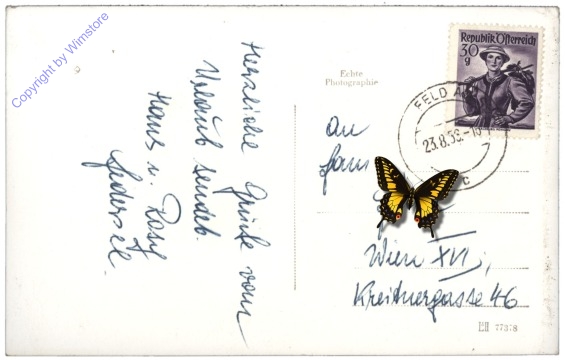 Copyright by Wimstore
Herzliche Grüße vom
Urlaub sendet
Hans u. Rosy
Echte
Photographie
Republik Österreich
30
g
FELD A
23.8.56.-16
c
an
Fam
Wien XVI,
Kreitnergasse 46
77378